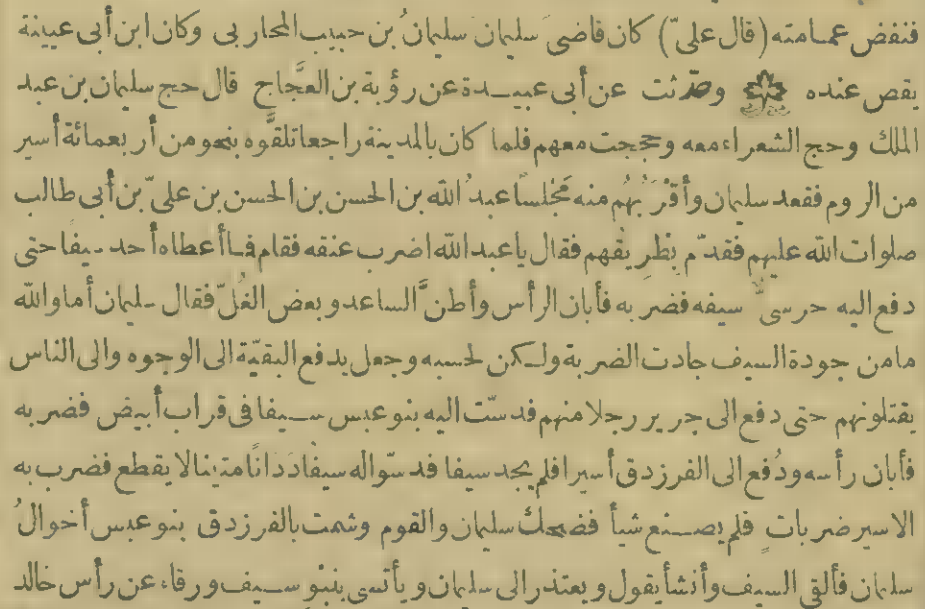 فنفض عمامته (قال علىّ) كان قاضى سليمان سليمانُ بن حبيب المحاربى وكان ابن أبى عيينة
يقص عنده وحُدّثت عن أبى عبيدة عن رؤبة بن العجَّاج قال حج سليمان بن عبد
الملك وحج الشعراء معه وحججت معهم فلما كان بالمدينة راجعا تلقَّوه بنحو من أربعمائة أسير
من الروم فقعد سليمان وأقرَبُهُم منه مَجْلسًا عبدُ الله بن الحسن بن الحسن بن علىّ بن أبى طالب
صلوات الله عليهم فقدّم بِطرِيقُهم فقال يا عبد الله اضرب عنقه فقام فما أعطاه أحد سيفا حتى
دفع اليه حرسىّ سيفه فضربه فأبان الرأس وأطنَّ الساعد وبعض الغُلّ فقال سليمان أما والله
ما من جودة السيف جادت الضربة ولكن لحسبه وجعل يدفع البقيّة الى الوجوه والى الناس
يقتلونهم حتى دفع الى جرير رجلا منهم فدسّت اليه بنو عبس سيفا فى قراب أبيض فضربه
فأبان رأسه ودُفع الى الفرزدق أسير افلم يجد سيفا فدسّوا له سيفا دَدَانًا متينا لا يقطع فضرب به
الاسير ضربات فلم يصنع شيأ فضحك سليمان والقوم وشمت بالفرزدق بنو عبس أخوالُ
سليمان فألقى السيف وأنشأ يقول ويعتذر الى سليمان ويأتسى بنبوّ سيف ورقاء عن رأس خالد